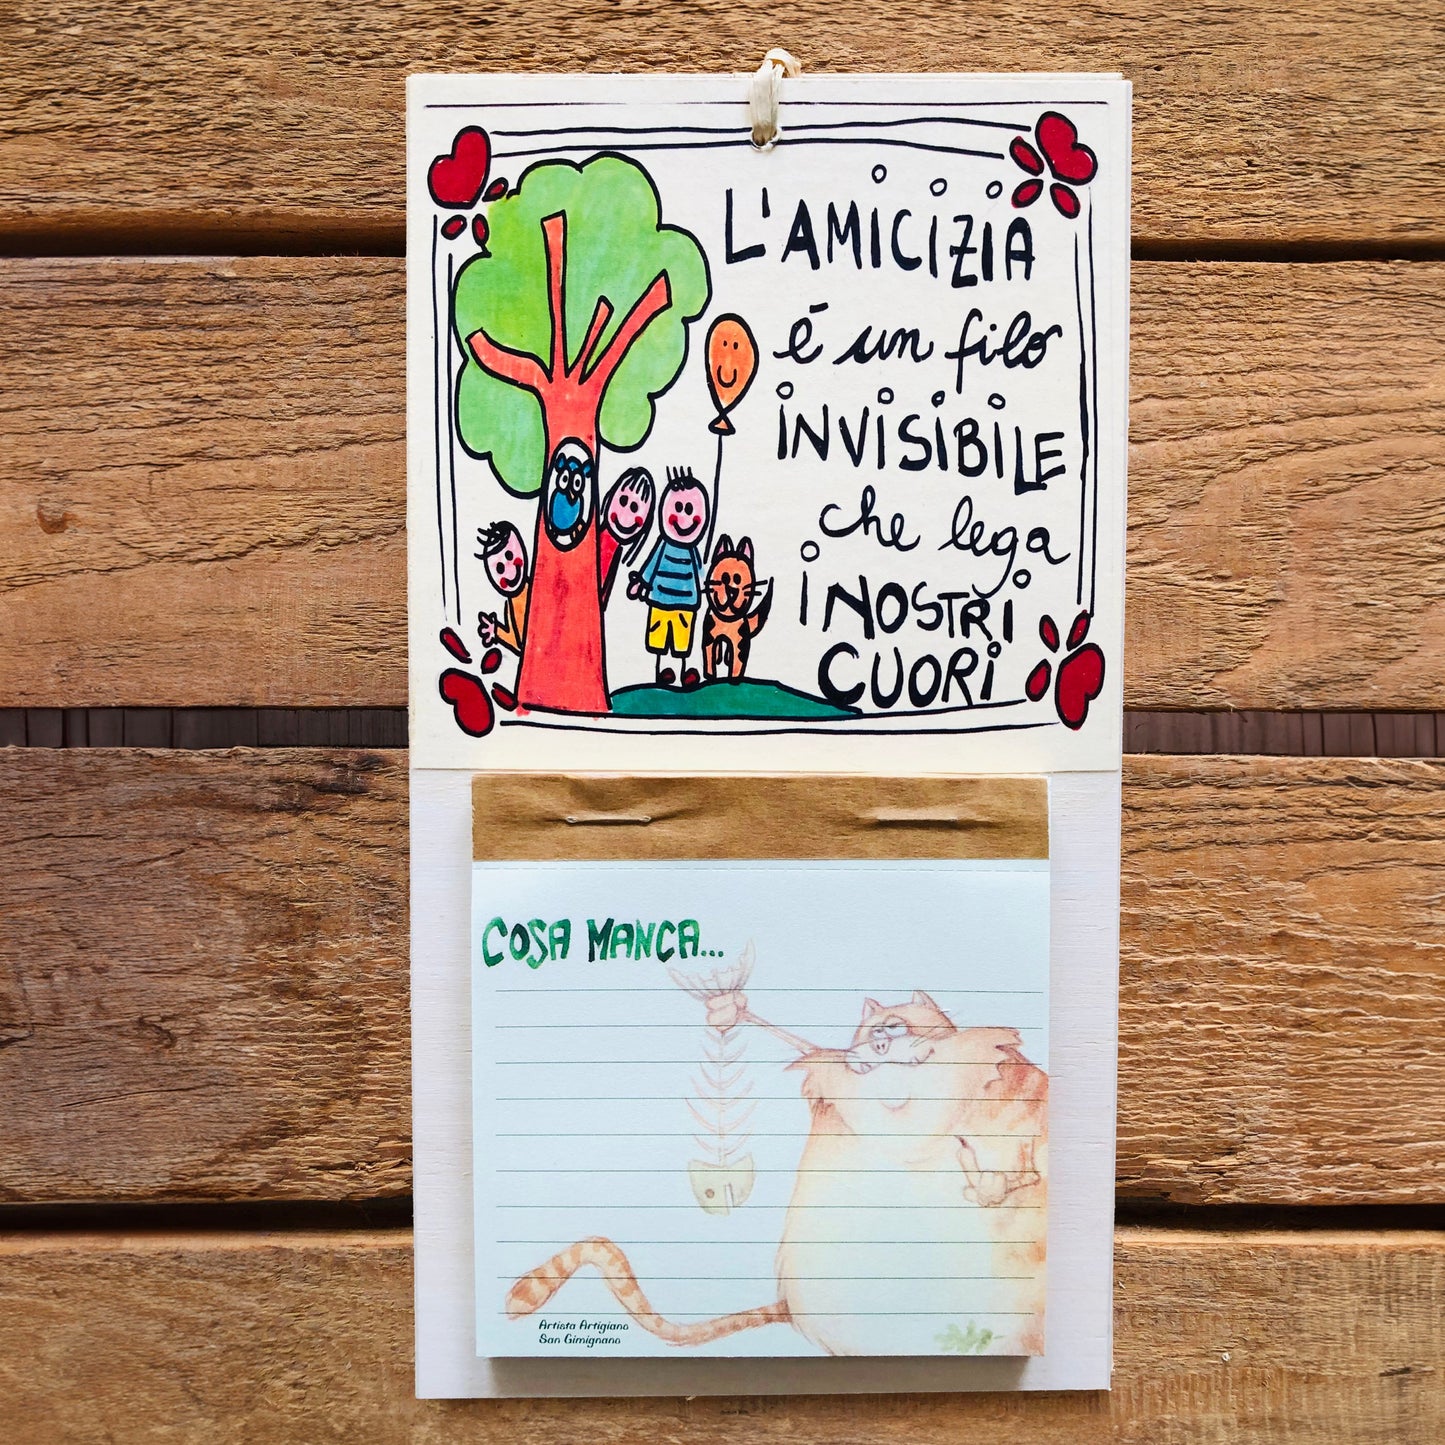 L'AMICIZIA
é un filo
INVISIBILE
che lega
I NOSTRI
CUORI
COSA MANCA...
Artista Artigiano
San Gimignano